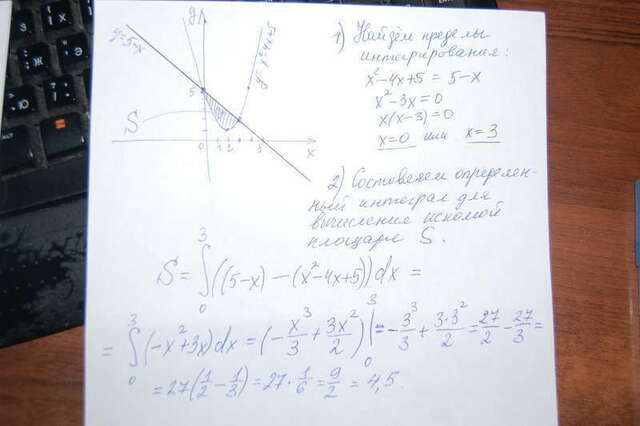 y
y=5-x
y=x²-4x+5
5
S
0
1 2
5
x
1) Найдём пределы
интегрирования:
x²-4x+5 = 5-x
x²-3x=0
x(x-3)=0
x=0 или x=3
2) Составляем определен-
ный интеграл для
вычисления искомой
площади S.
S = ∫₀³((5-x)-(x²-4x+5))dx =
= ∫₀³(-x²+3x)dx = (-x³/3+3x²/2)|₀³ = -3³/3+3·3²/2 = 27/2-27/3 =
= 27(1/2-1/3) = 27·1/6 = 9/2 = 4,5.